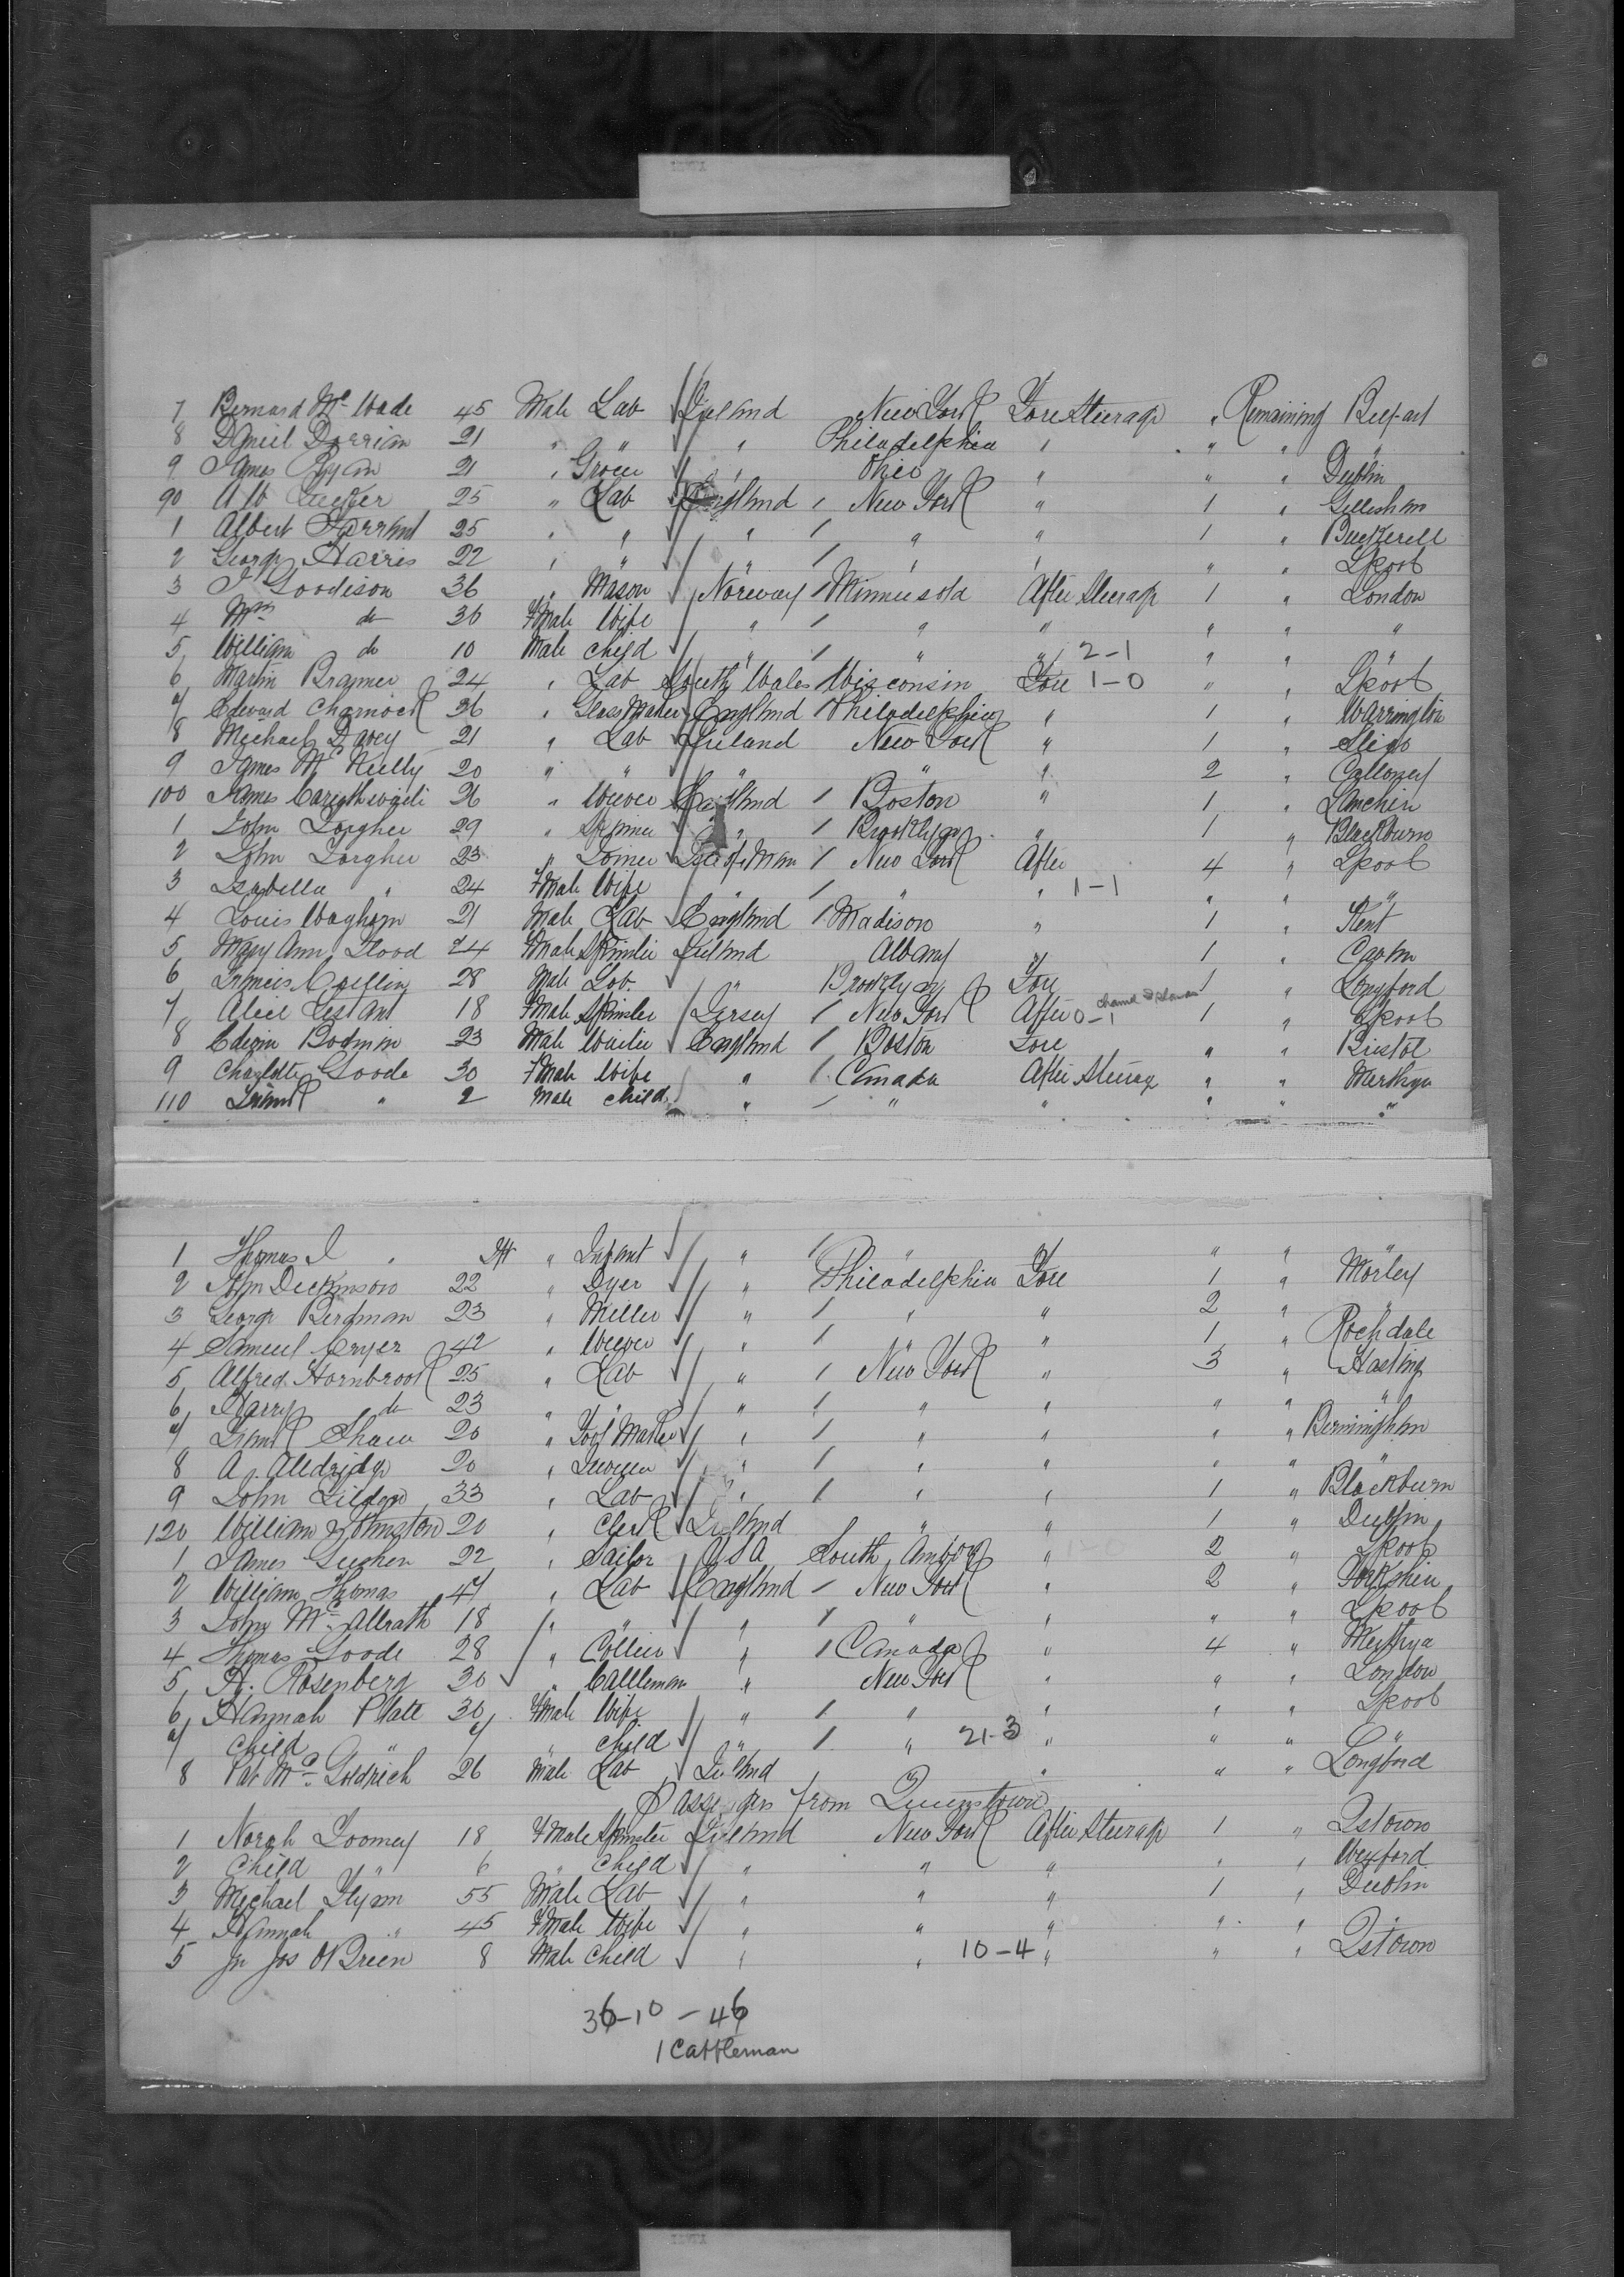 7 Bernard Mc Wade 45 Male Lab Ireland New York Fore Steerage " Remaining Belfast
8 Daniel Dorrian 21 " " " Philadelphia " " " "
9 James Ryan 21 " Grocer " Ohio " " " Dublin
90 A W Tucker 25 " Lab England 1 New York " 1 "
1 Albert Farrant 25 " " " 1 " " 1 " Buckerell
2 George Harris 22 " " " 1 " " " " Lpool
3 J Goodison 36 " Mason Norway 1 Minnesota After Steerage 1 " London
4 Mrs do 36 Fmale Wife " 1 " " " " "
5 William do 10 Male Child " 1 " " 2-1 " " "
6 Martin 24 " Lab South Wales Wisconsin Fore 1-0 " " Lpool
7 Edward Charnock 26 " Glass Maker England 1 Philadelphia " 1 " Warrington
8 Michael Davey 21 " Lab Ireland New York " 1 " Sligo
9 James Mc Nulty 20 " " " " " 2 "
100 James 26 " Weaver England 1 Boston " 1 "
1 John 29 " Spinner " 1 Brooklyn " 1 " Blackburn
2 John 23 " Joiner Isle of Man 1 New York After 4 " Lpool
3 Isabella " 24 Fmale Wife " 1 " " 1-1 " " "
4 Louis Waghorn 21 Male Lab England 1 Madison " 1 " Kent
5 Mary Ann Flood 24 Fmale Spinster Ireland Albany " 1 " Cavan
6 Francis 28 Male Lab " Brooklyn Fore 1 " Longford
7 Alice 18 Fmale Spinster Jersey 1 New York After 0-1 Channel Islands 1 " Lpool
8 Edwin Bodmin 23 Male England 1 Boston Fore " " Bristol
9 Charlotte Goode 30 Fmale Wife " 1 Canada After Steerage " " Merthyr
110 Frank " 2 Male Child " 1 " " " " "
1 Thomas J " Inft " Infant " 1 " " " "
2 John Dickinson 22 " Dyer " 1 Philadelphia Fore 1 " Morley
3 George Birdman 23 " Miller " 1 " " 2 " "
4 Samuel Cryer 42 " Weaver " 1 " " 1 " Rochdale
5 Alfred Hornbrook 25 " Lab " 1 New York " 3 " Hasting
6 Harry do 23 " " " 1 " " " " "
7 Frank Shaw 20 " Tool Maker " 1 " " " " Birmingham
8 A. Aldridge 20 " " 1 " " " " "
9 John 33 " Lab " 1 " " 1 " Blackburn
120 William Johnston 20 " Clerk Ireland " " 1 " Dublin
1 James 22 " Sailor U S A South Amboy " 2 " Lpool
2 William Thomas 47 " Lab England 1 New York " 2 " Yorkshire
3 John Mc Allrath 18 " " " 1 " " " " Lpool
4 Thomas Goode 28 " Collier " 1 Canada " 4 " Merthyr
5 H. Rosenberg 30 " Cattleman " New York " " " London
6 Hannah Platt 30 Fmale Wife " 1 " " " " Lpool
7 Child " 7 " Child " 1 " 21-3 " " " "
8 Pat Mc Goldrich 26 Male Lab Ireland " " " " Longford
Passengers from Queenstown
1 Norah Toomey 18 Fmale Spinster Ireland New York After Steerage 1 " Qstown
2 Child " 6 " Child " " " " " Wexford
3 Michael Flynn 55 Male Lab " " " 1 " Dublin
4 Hannah " 45 Fmale Wife " " " " " "
5 Jn Jos O'Brien 8 Male Child " " 10-4 " " " Qstown
36-10 - 46
1 Cattleman